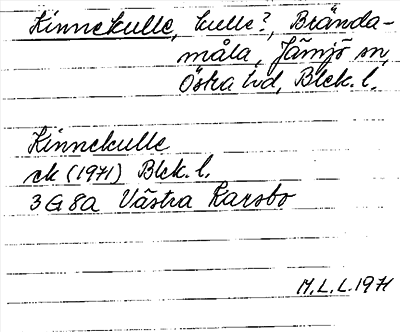 Kinnekulle, kulle?, Brända-
måla, Jämjö sn,
Östra hd, Blek. l.
Kinnekulle
ek (1971) Blek. l.
3G8a Västra Rarsbo
M.L.L. 1971